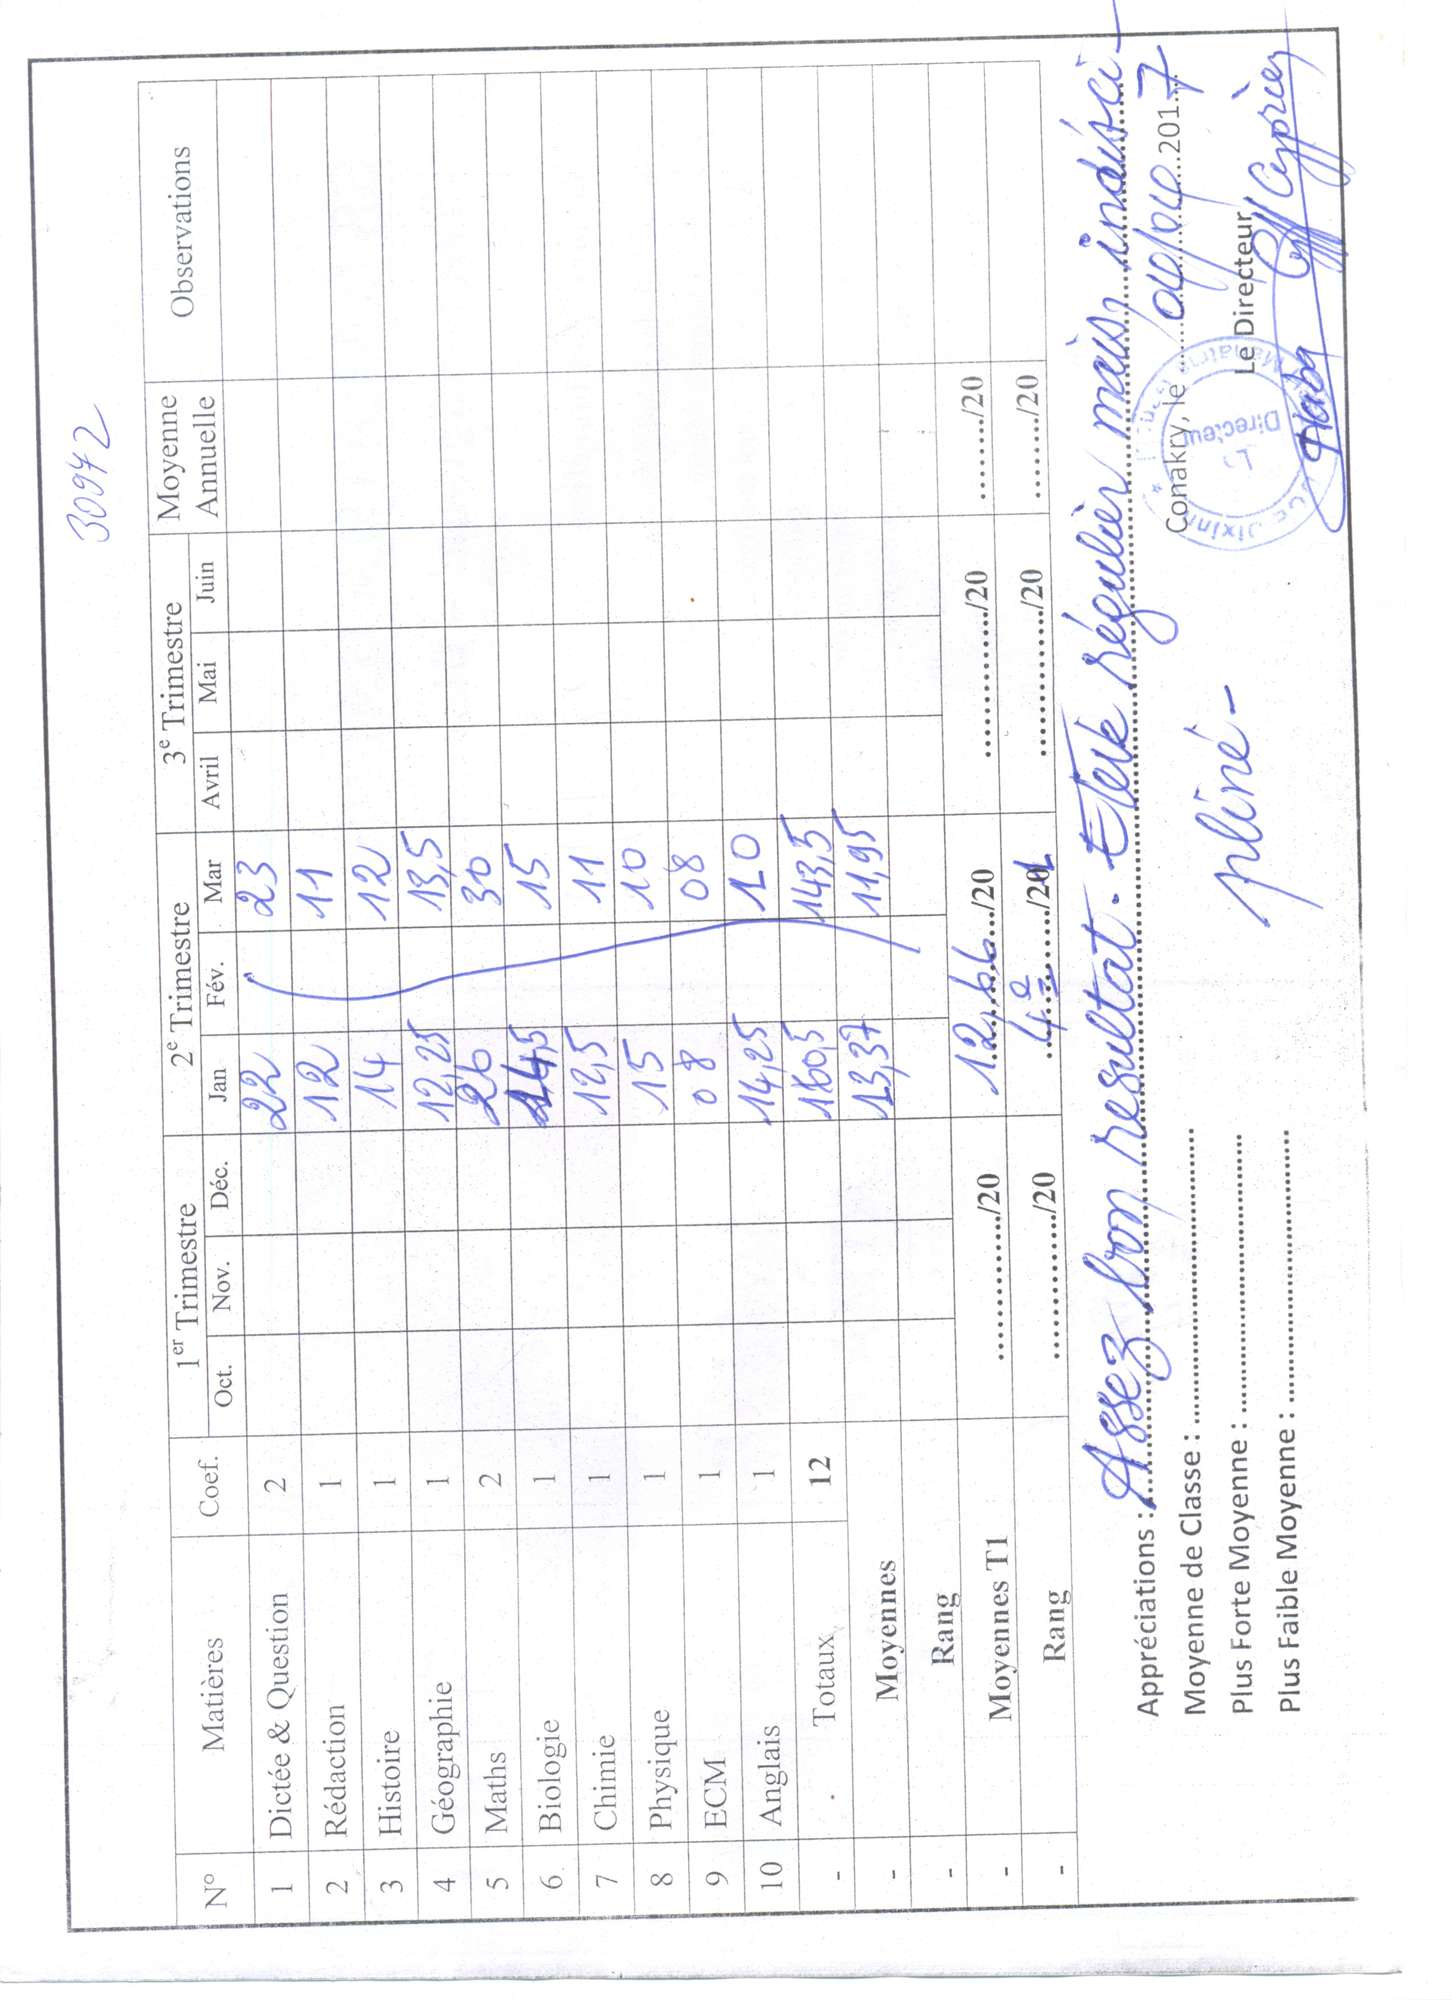 30972
N° Matières Coef. 1er Trimestre 2e Trimestre 3e Trimestre Moyenne Annuelle Observations
Oct. Nov. Déc. Jan Fév. Mar Avril Mai Juin
1 Dictée & Question 2 22 23
2 Rédaction 1 12 11
3 Histoire 1 14 12
4 Géographie 1 12,25 13,5
5 Maths 2 26 30
6 Biologie 1 14,5 15
7 Chimie 1 12,5 11
8 Physique 1 15 10
9 ECM 1 08 08
10 Anglais 1 14,25 10
- Totaux 12 160,5 143,5
- Moyennes 13,37 11,95
- Rang
- Moyennes T1 ............../20 12,66/20 ............../20 ......../20
- Rang ............../20 4e/21 ............../20 ......../20
Appréciations : Assez bon resultat. Elève régulier mais indisci-
pliné-
Moyenne de Classe : ..............................
Plus Forte Moyenne : ..............................
Plus Faible Moyenne : ..............................
Conakry, le 04/04 2017
Le Directeur
Directeur